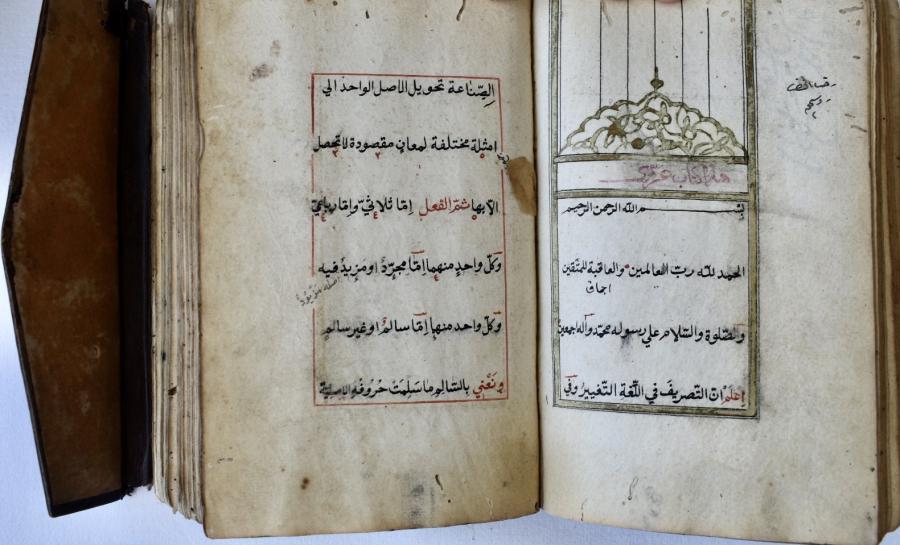 هذا كتاب عزي
بسم الله الرحمن الرحيم
الحمد لله ربّ العالمين والعاقبة للمتّقين
والصّلوة والسّلام علي رسوله محمّد وآله اجمعين
اِعلَمْ انّ التّصريفَ في اللّغة التّغييرُ وفي
الصِّناعة تحويل الاصل الواحد الي
امثِلة مختلفة لمعانٍ مقصودة لا تحصل
الّا بها ثمّ الفعل اِمّا ثلاثيّ وامّا رباعيّ
وكلّ واحدٍ منهما اِمّا مجرّدٌ او مَزِيدٌ فيه
وكلّ واحد منها اِمّا سالمٌ او غير سالم
ونَعْنِي بالسّالِم ما سَلِمَتْ حُرُوفُه الاصلية